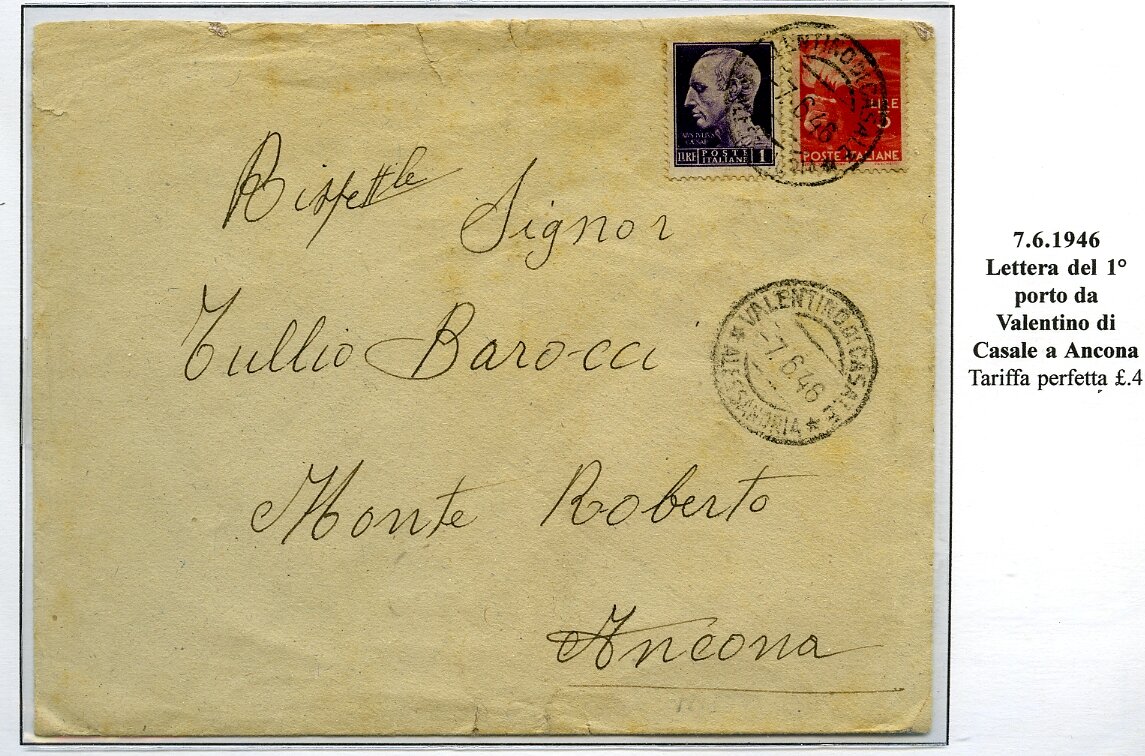 LIRE
3
IVLIVS
CAESAR
LIRE POSTE ITALIANE 1
POSTE ITALIANE
VALENTINO DI CASALE
-7.6.46
Rispett.le Signor
Tullio Barocci
VALENTINO DI CASALE
-7.6.46
* ALESSANDRIA *
Monte Roberto
Ancona
7.6.1946
Lettera del 1°
porto da
Valentino di
Casale a Ancona
Tariffa perfetta £.4